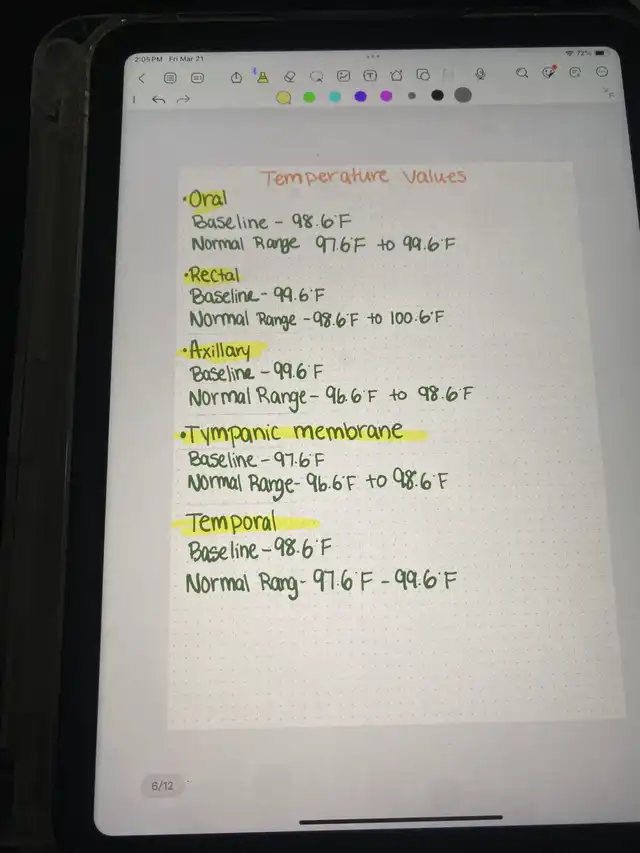 2:05 PM Fri Mar 21
72%
Temperature Values
•Oral
Baseline - 98.6°F
Normal Range 97.6°F to 99.6°F
•Rectal
Baseline - 99.6°F
Normal Range - 98.6°F to 100.6°F
•Axillary
Baseline - 99.6°F
Normal Range - 96.6°F to 98.6°F
•Tympanic membrane
Baseline - 97.6°F
Normal Range - 96.6°F to 98.6°F
Temporal
Baseline - 98.6°F
Normal Rang - 97.6°F - 99.6°F
6/12